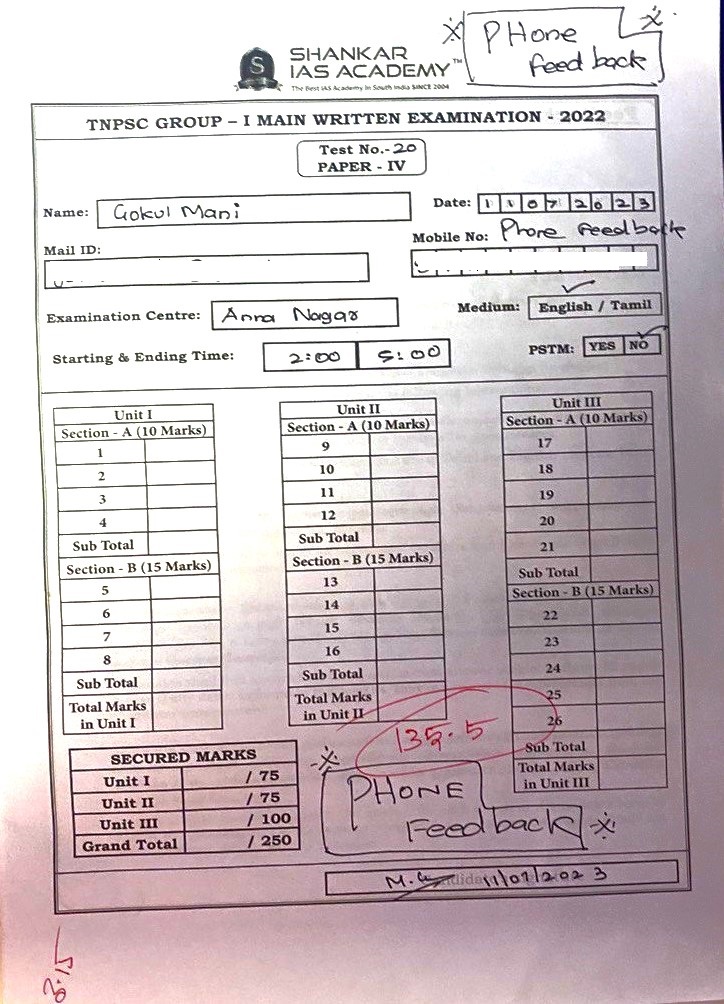 PHone
Feedback
S
SHANKAR
IAS ACADEMY™
The Best IAS Academy In South India SINCE 2004
TNPSC GROUP – I MAIN WRITTEN EXAMINATION - 2022
Test No.-20
PAPER - IV
Name: Gokul Mani
Date: 11072023
Mail ID:
Mobile No: Phone Feedback
Examination Centre: Anna Nagar
Medium: English / Tamil
Starting & Ending Time: 2:00 5:00
PSTM: YES NO
Unit I
Section - A (10 Marks)
1
2
3
4
Sub Total
Section - B (15 Marks)
5
6
7
8
Sub Total
Total Marks
in Unit I
Unit II
Section - A (10 Marks)
9
10
11
12
Sub Total
Section - B (15 Marks)
13
14
15
16
Sub Total
Total Marks
in Unit II
Unit III
Section - A (10 Marks)
17
18
19
20
21
Sub Total
Section - B (15 Marks)
22
23
24
25
26
Sub Total
Total Marks
in Unit III
135.5
SECURED MARKS
Unit I / 75
Unit II / 75
Unit III / 100
Grand Total / 250
PHONE
Feedback
11/07/2023